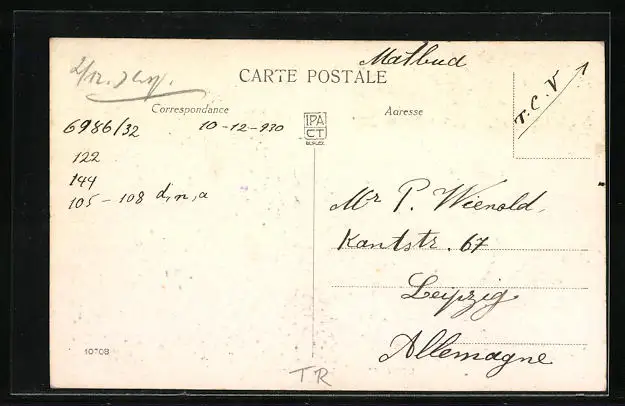 Malbud
CARTE POSTALE
T. C. V
Correspondance
Adresse
6986/32 10-12-930
IPA
CT
122
144
105 - 108 d, n, a
Mr P. Wienold,
Kantstr. 67
Leipzig
Allemagne
10708
TR